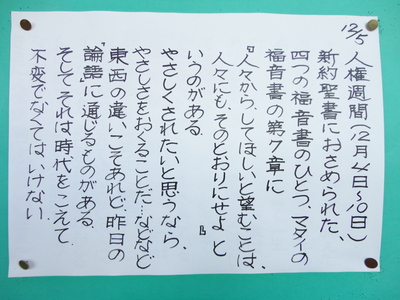 12/5 人権週間(12月4日~10日)
新約聖書におさめられた、
四つの福音書のひとつ、マタイの
福音書の第7章に
『人々から、してほしいと望むことは、
人々にも、そのとおりにせよ』と
いうのがある。
やさしくされたいと思うなら、
やさしさをおくることだ…などなど
東西の違いこそあれど昨日の
"論語"に通じるものがある。
そしてそれは時代をこえて
不変でなくてはいけない